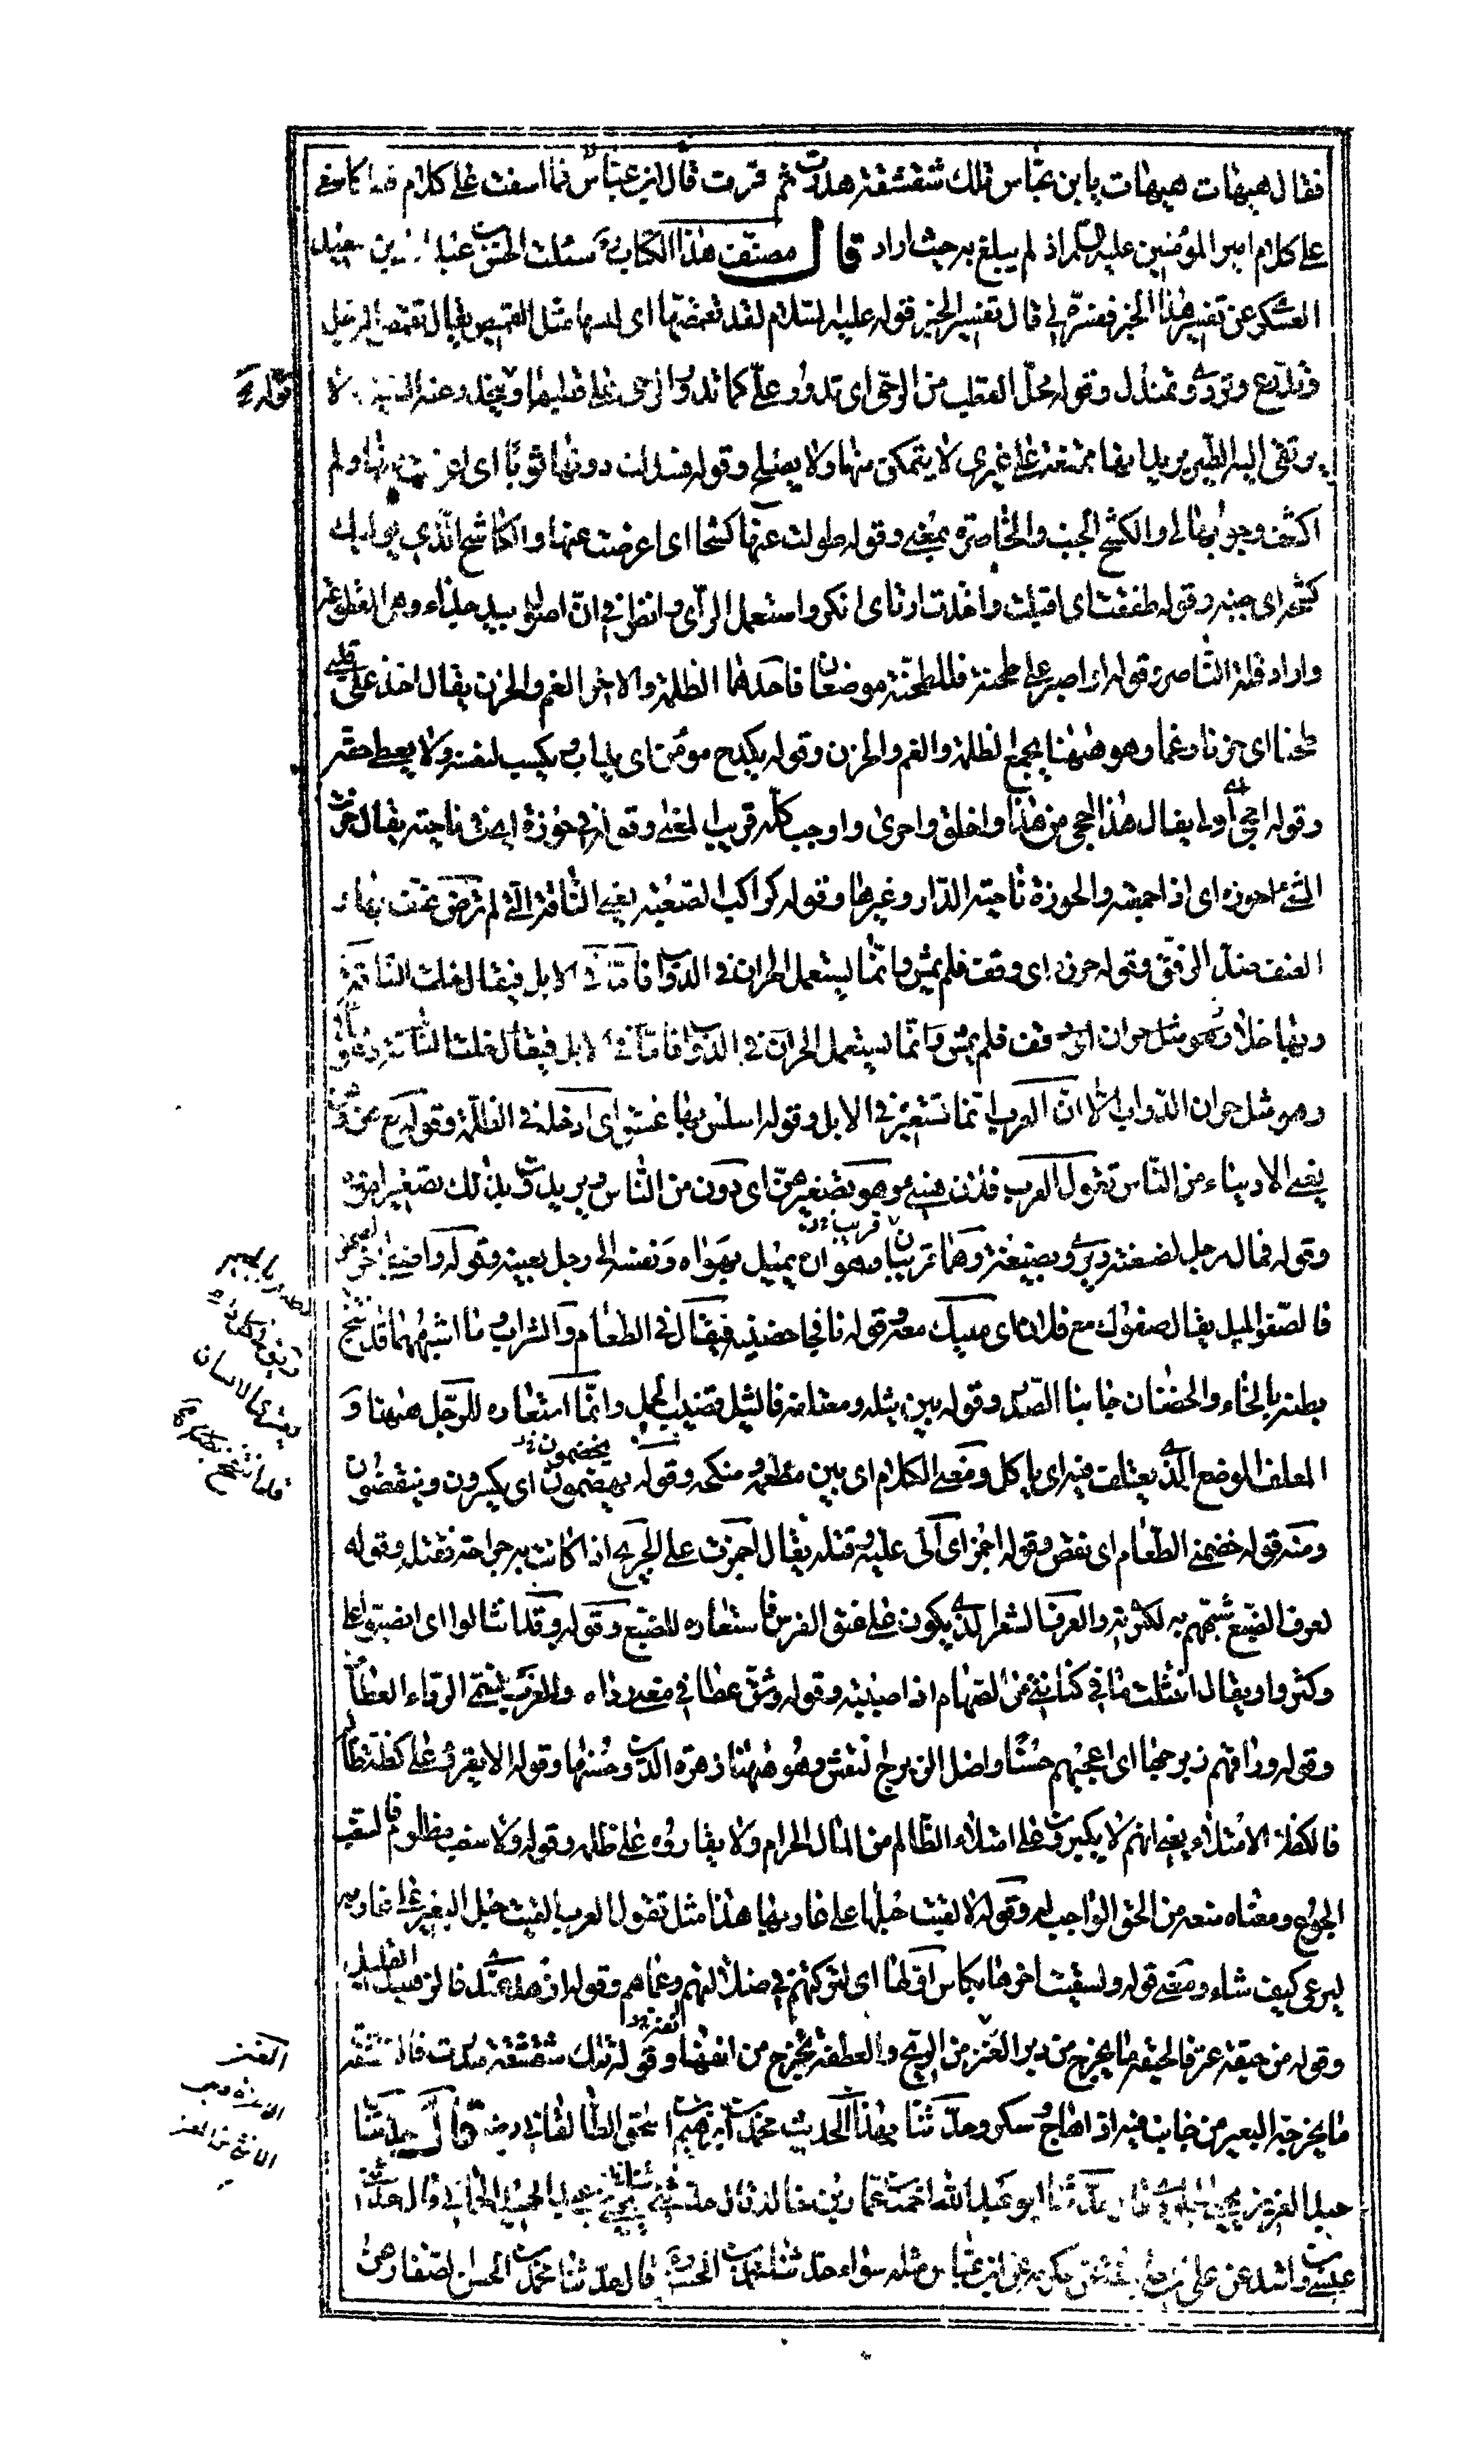 فقال هيهات هيهات يا بن عباس تلك شقشقة هدرت ثم قرت قال ابن عباس فما اسفت على كلام قط كاسفي
على كلام امير المؤمنين عليه السلام اذ لم يبلغ به حيث اراد قال مصنف هذا الكتاب ره سئلت الحسن بن عبد الله بن سعيد
العسكرى عن تفسير هذا الخبر ففسره لى قال تفسير الخبر قوله عليه السلام لقد تقمصها اى لبسها مثل القميص يقال تقمص الرجل
وتدرع وتردى وتمندل وقوله محل القطب من الرحى اى تدور على كما تدور الرحى على قطبها وقوله ينحدر عنه السيل ولا
يرتقى اليه الطير يريد انها ممتنعة على غيرى لا يتمكن منها ولا يصلح وقوله فسدلت دونها ثوبا اى اعرضت عنها ولم
اكشف وجوبها لى والكشح الجنب والخاصرة بمعنى وقوله طويت عنها كشحا اى اعرضت عنها والكاشح الذي يوليك
كشحه اى جنبه وقوله طفقت اى اقبلت واخذت ارتاى انكر واستعمل الرأى وانظر فى ان اصول بيد جذاء وهى المقطوعة
واراد قلة الناصر وقوله او اصبر على طخية فللطخية موضعان فاحدهما الظلمة والاخر الغم والحزن يقال اخذ على قلبى
طخيا اى حزنا وغما وهو ههنا يجمع الظلمة والغم والحزن وقوله يكدح مؤمن اى يداب ويكسب لنفسه ولا يعطى حقه
وقوله احجى اى اولى يقال هذا احجى من هذا واخلق واحرى واوجب كله قريب المعنى وقوله فى حوزة اى فى ناحية يقال حزت
الشئ احوزه اى اذا جمعته والحوزة ناحية الدار وغيرها وقوله كراكب الصعبة يعنى الناقة التى لم ترض عنف بها و
العنف ضد الرفق وقوله حرن اى وقف فلم يمش وانما يستعمل الحران فى الدواب فاما فى الابل فيقال خلت الناقة
وبها خلاء وهو مثل حران اى وقف فلم يمش وانما يستعمل الحران فى الدواب فاما فى الابل فيقال خلت الناقة
وهو مثل حران الدواب الا ان العرب انما تستعيره فى الابل وقوله اسلس بها غشى اى ادخله فى الظلمة وقوله مع هن وهن
يعنى الادنياء من الناس تقول العرب فلان هنى وهو تصغير هن اى دون من الناس ويريدون بذلك تصغير امره
وقوله فمال رجل لضغنه ويروى بضبعه وهما قريبان وهو ان يميل بهواه ونفسه الى رجل بعينه وقوله واصغى اخر لصهره
فالصغو الميل يقال صغوك مع فلان اى ميلك معه وقوله نافجا حضنيه فيقال فى الطعام والشراب وما اشبههما قد انتفخ
بطنه بالخاء والحضنان جانبا الصدر وقوله بين نثيله ومعتلفه فالنثيل قضيب الجمل وانما استعاره للرجل ههنا و
المعلف الموضع الذى يعتلف فيه اى ياكل ومعنى الكلام اى بين مطعمه ومنكحه وقوله يهضمون اى يكسرون وينقضون
ومنه قوله هضمنى الطعام اى نقض وقوله اجهز اى اتى عليه وقتله يقال اجهزت على الجريح اذا كانت به جراحة فقتله وقوله
كعرف الضبع شبههم به لكثرته والعرف الشعر الذى يكون على عنق الفرس فاستعاره للضبع وقوله وقد انثالوا اى انصبوا على
وكثروا ويقال انتثلت ما فى كنانتى من السهام اذا صببته وقوله وشق عطافى يعنى رداه والعرب تسمى الرداء العطاف
وقوله وراقهم زبرجها اى اعجبهم حسنا واصل الزبرج النقش وهو ههنا زهرة الدنيا وحسنها وقوله الا يقروا على كظة ظالم
فالكظة الامتلاء يعنى انهم لا يكبرون على امتلاء الظالم من المال الحرام ولا يقاروه على ظلمه وقوله ولا سغب مظلوم فالسغب
الجوع ومعناه منعه من الحق الواجب له وقوله لالقيت حبلها على غاربها هذا مثل تقول العرب القيت حبل البعير على غاربه
ليرعى كيف شاء ومعنى قوله ولسقيت اخرها بكاس اولها اى لتركتهم فى ضلالتهم وعماهم وقوله ازهد عندى فالزهيد القليل
وقوله من حبقة عنز فالحبقة ما يخرج من دبر العنز من الريح والعفطة يخرج من انفها وقوله تلك شقشقة هدرت فالشقشقة
ما يخرجه البعير من جانب فيه اذا هاج وسكر وحدثنا بهذا الحديث محمد بن ابرهيم بن اسحق الطالقانى رضه قال حدثنا
عبد العزيز بن يحيى الجلودى قال حدثنا ابو عبد الله احمد بن عمار بن خالد قال حدثنى يحيى بن عبد الحميد الحمانى قال حدثنا
عيسى بن راشد عن على بن عن عكرمة عن ابن عباس مثله سواء حدثنا محمد بن الحسن ره قال حدثنا محمد بن الحسن الصفار عن
قوله
العنز
الانثى من المعز